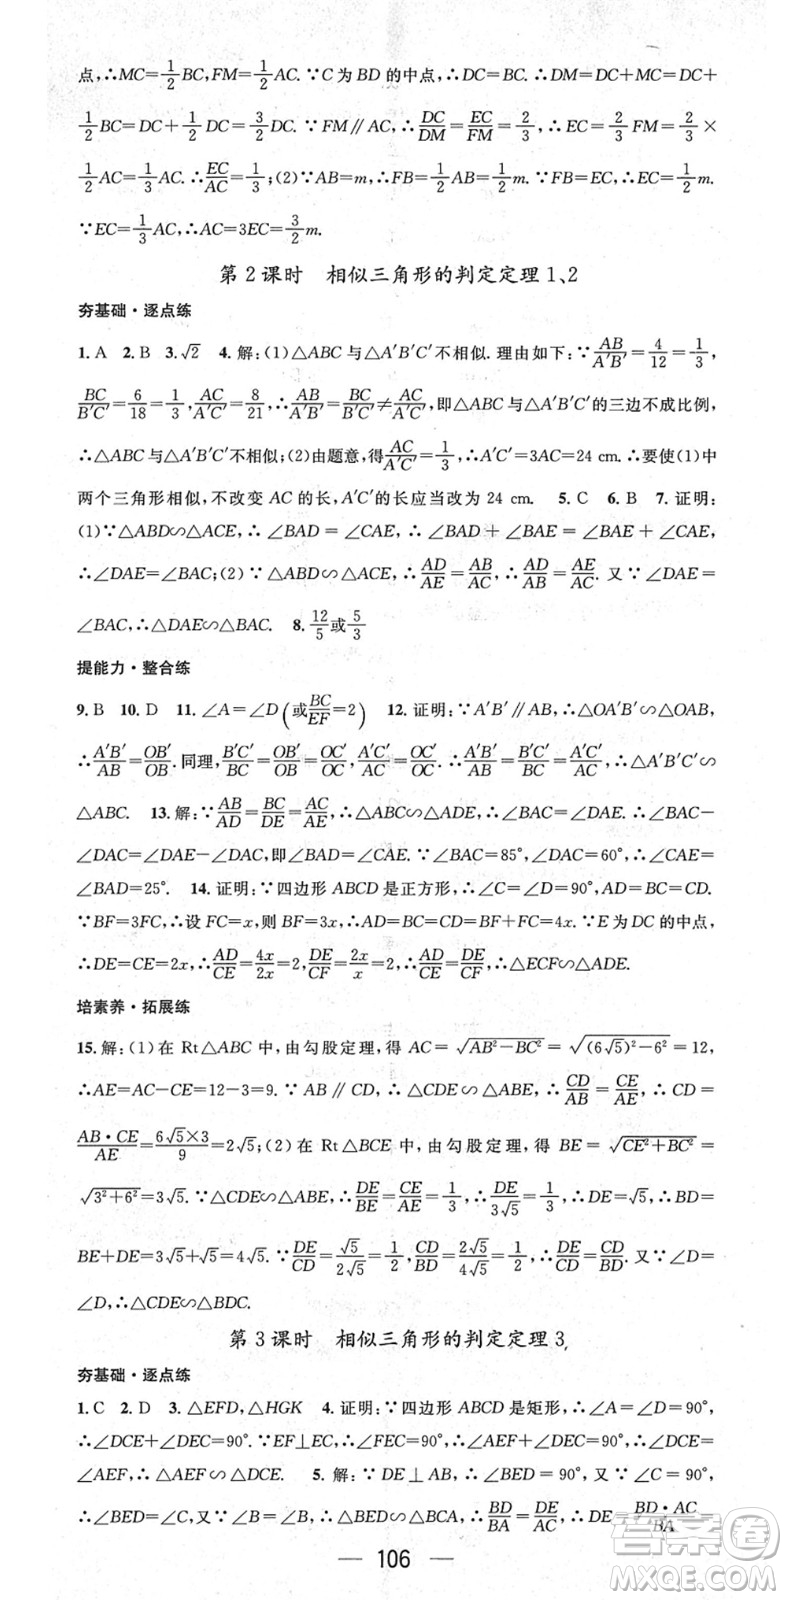 点,∴MC=1/2BC,FM=1/2AC.∵C为BD的中点,∴DC=BC.∴DM=DC+MC=DC+
1/2BC=DC+1/2DC=3/2DC.∵FM∥AC,∴DC/DM=EC/FM=2/3,∴EC=2/3FM=2/3×
1/2AC=1/3AC.∴EC/AC=1/3;(2)∵AB=m,∴FB=1/2AB=1/2m.∵FB=EC,∴EC=1/2m.
∵EC=1/3AC,∴AC=3EC=3/2m.
第2课时 相似三角形的判定定理1、2
夯基础·逐点练
1.A 2.B 3.√2 4.解:(1)△ABC与△A′B′C′不相似.理由如下:∵AB/A′B′=4/12=1/3,
BC/B′C′=6/18=1/3,AC/A′C′=8/21,∴AB/A′B′=BC/B′C′≠AC/A′C′,即△ABC与△A′B′C′的三边不成比例,
∴△ABC与△A′B′C′不相似;(2)由题意,得AC/A′C′=1/3,∴A′C′=3AC=24 cm.∴要使(1)中
两个三角形相似,不改变AC的长,A′C′的长应当改为24 cm. 5.C 6.B 7.证明:
(1)∵△ABD∽△ACE,∴∠BAD=∠CAE,∴∠BAD+∠BAE=∠BAE+∠CAE,
∴∠DAE=∠BAC;(2)∵△ABD∽△ACE,∴AD/AE=AB/AC,∴AD/AB=AE/AC.又∵∠DAE=
∠BAC,∴△DAE∽△BAC. 8.12/5或5/3
提能力·整合练
9.B 10.D 11.∠A=∠D(或BC/EF=2) 12.证明:∵A′B′∥AB,∴△OA′B′∽△OAB,
∴A′B′/AB=OB′/OB.同理,B′C′/BC=OB′/OB=OC′/OC,A′C′/AC=OC′/OC.∴A′B′/AB=B′C′/BC=A′C′/AC,∴△A′B′C′∽
△ABC. 13.解:∵AB/AD=BC/DE=AC/AE,∴△ABC∽△ADE,∴∠BAC=∠DAE.∴∠BAC-
∠DAC=∠DAE-∠DAC,即∠BAD=∠CAE.∵∠BAC=85°,∠DAC=60°,∴∠CAE=
∠BAD=25°. 14.证明:∵四边形ABCD是正方形,∴∠C=∠D=90°,AD=BC=CD.
∵BF=3FC,∴设FC=x,则BF=3x,∴AD=BC=CD=BF+FC=4x.∵E为DC的中点,
∴DE=CE=2x,∴AD/CE=4x/2x=2,DE/CF=2x/x=2,∴AD/CE=DE/CF,∴△ECF∽△ADE.
培素养·拓展练
15.解:(1)在Rt△ABC中,由勾股定理,得AC=√(AB²-BC²)=√((6√5)²-6²)=12,
∴AE=AC-CE=12-3=9.∵AB∥CD,∴△CDE∽△ABE,∴CD/AB=CE/AE,∴CD=
AB·CE/AE=6√5×3/9=2√5;(2)在Rt△BCE中,由勾股定理,得BE=√(CE²+BC²)=
√(3²+6²)=3√5.∵△CDE∽△ABE,∴DE/BE=CE/AE=1/3,∴DE/3√5=1/3,∴DE=√5,∴BD=
BE+DE=3√5+√5=4√5.∵DE/CD=√5/2√5=1/2,CD/BD=2√5/4√5=1/2,∴DE/CD=CD/BD.又∵∠D=
∠D,∴△CDE∽△BDC.
第3课时 相似三角形的判定定理3
夯基础·逐点练
1.C 2.D 3.△EFD,△HGK 4.证明:∵四边形ABCD是矩形,∴∠A=∠D=90°,
∴∠DCE+∠DEC=90°.∵EF⊥EC,∴∠FEC=90°,∴∠AEF+∠DEC=90°,∴∠DCE=
∠AEF,∴△AEF∽△DCE. 5.解:∵DE⊥AB,∴∠BED=90°,又∵∠C=90°,
∴∠BED=∠C,又∵∠B=∠B,∴△BED∽△BCA,∴BD/BA=DE/AC,∴DE BD·AC/BA
106
答案圈
MXQE.COM